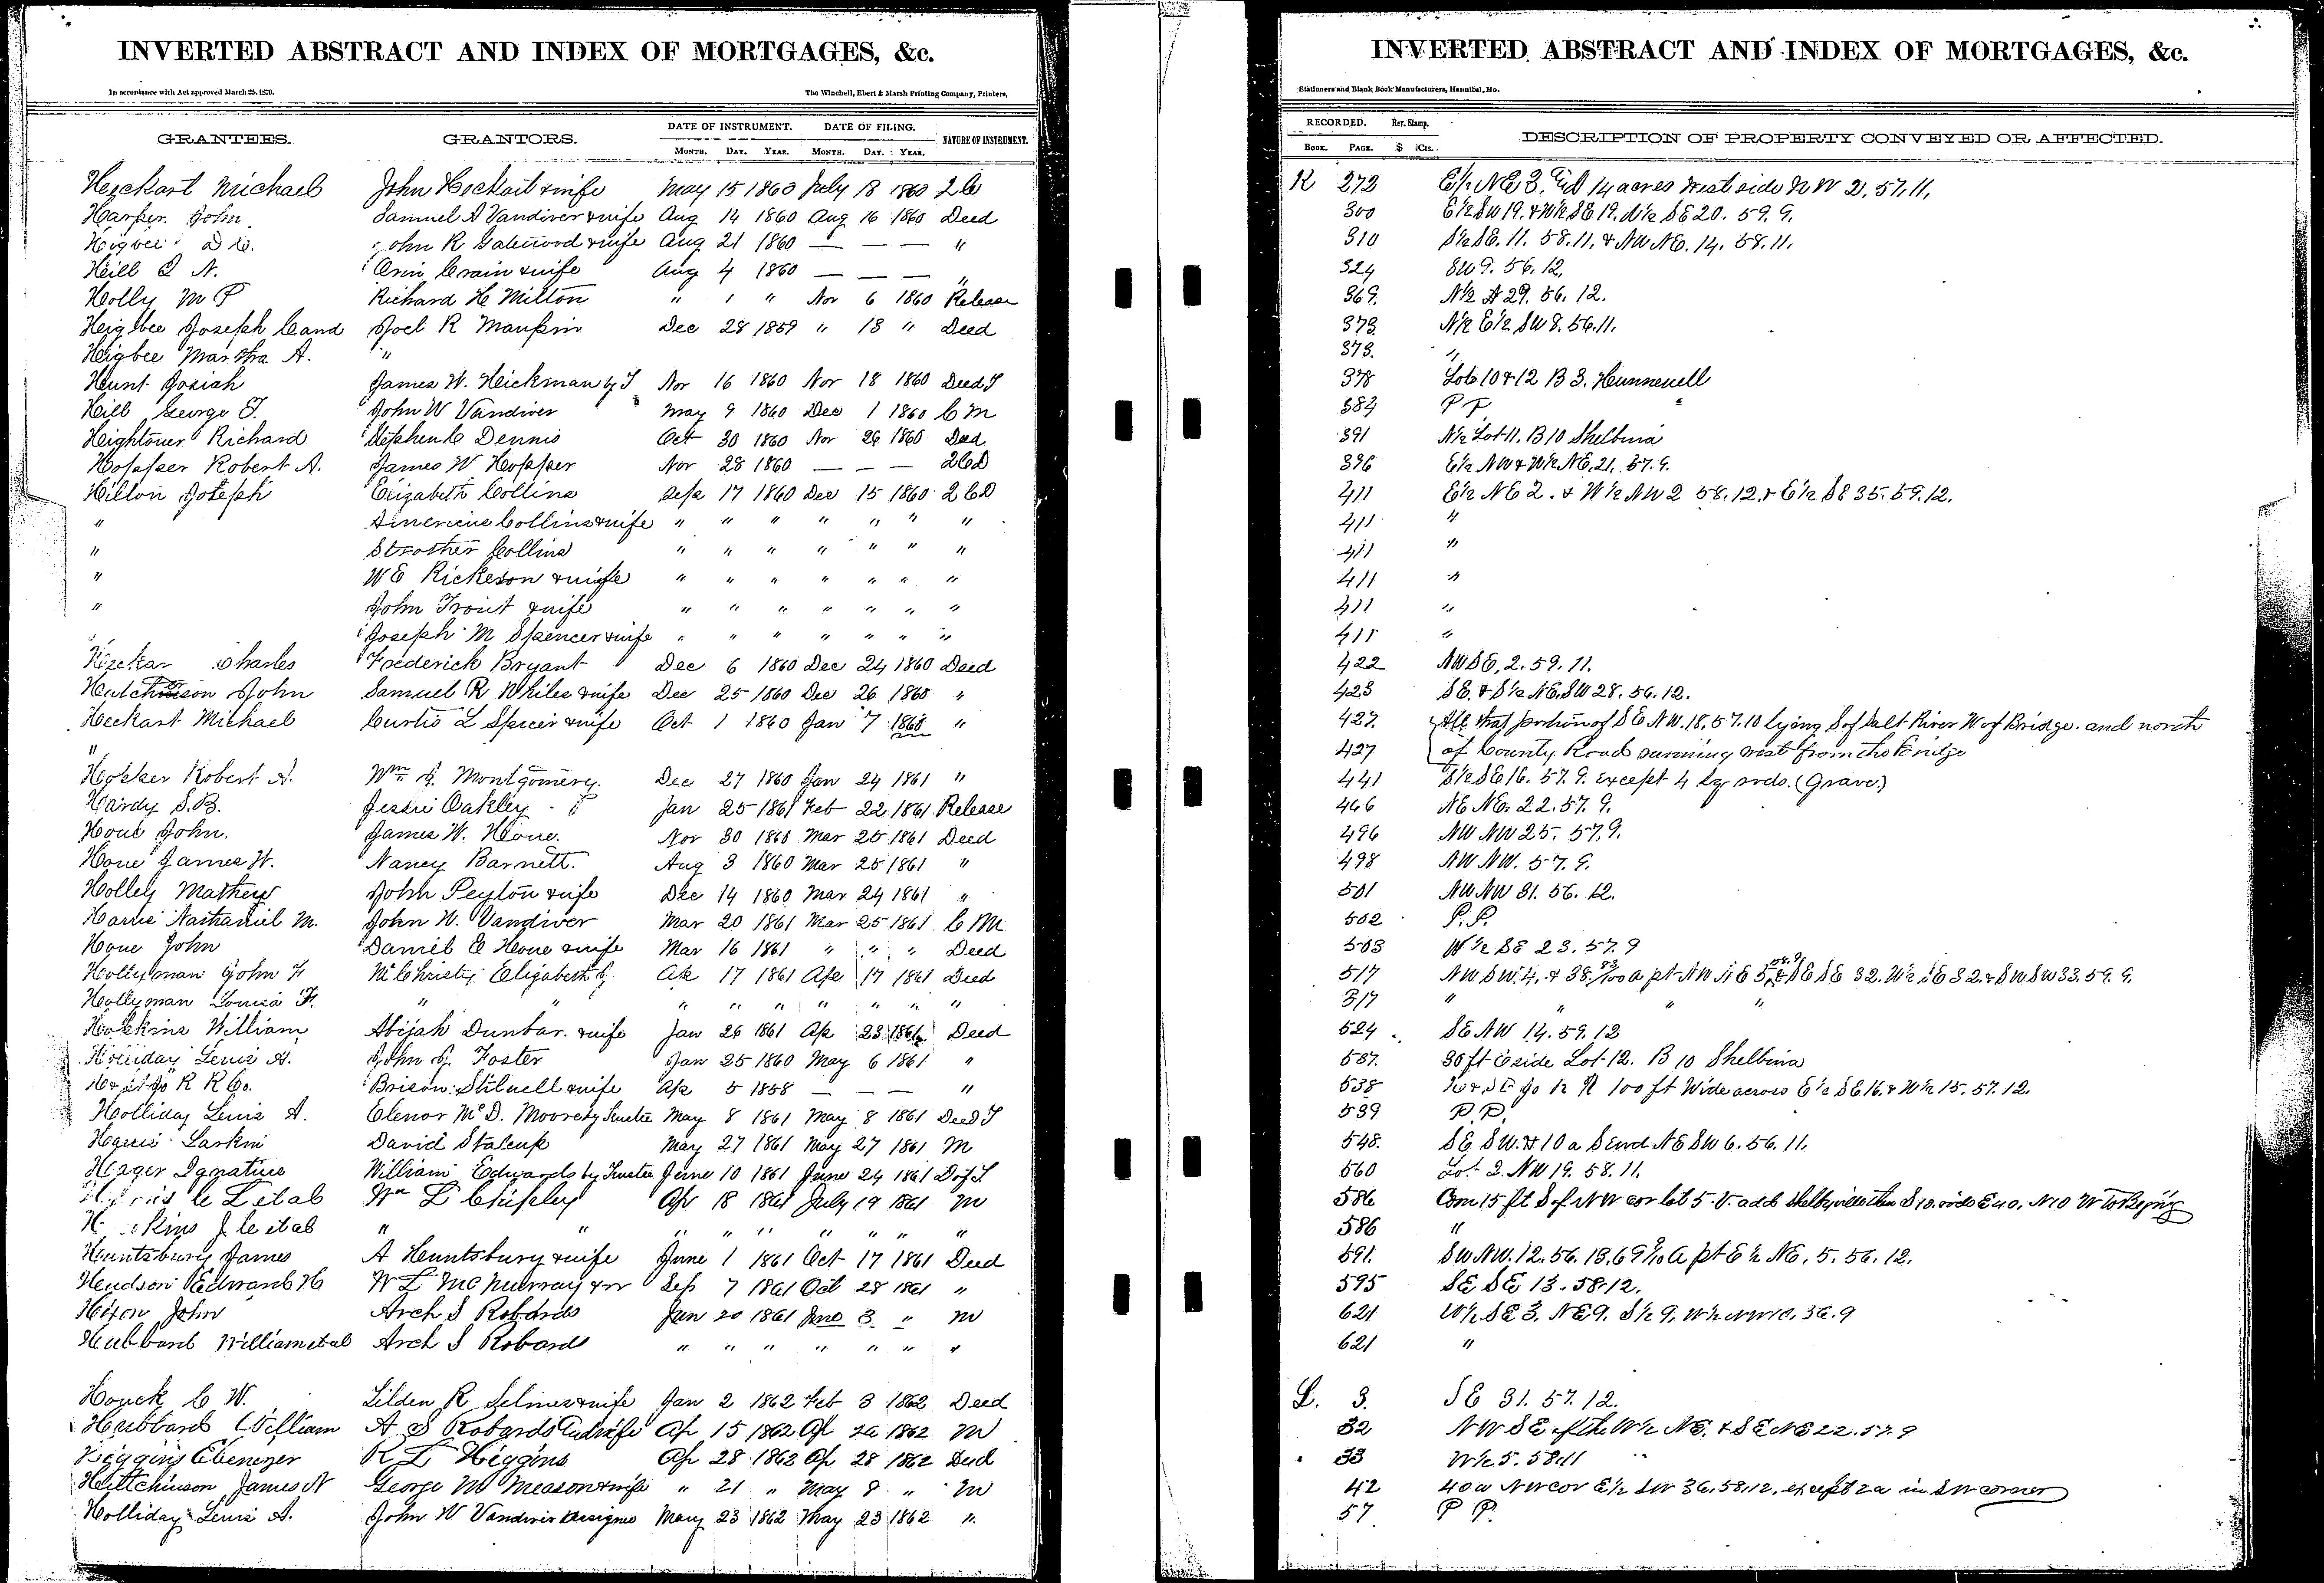 INVERTED ABSTRACT AND INDEX OF MORTGAGES, &c.
In accordance with Act approved March 25, 1870.
The Winchell, Ebert & Marsh Printing Company, Printers,
GRANTEES. GRANTORS. DATE OF INSTRUMENT. DATE OF FILING. NATURE OF INSTRUMENT.
MONTH. DAY. YEAR. MONTH. DAY. YEAR.
Heckart Michael John Heckart & wife May 15 1860 July 18 1860
Harper John Samuel A Vandiver & wife Aug 14 1860 Aug 16 1860 Deed
Higbee John R Gatewood & wife Aug 21 1860 — — — "
Hill Q N. Orin Crain & wife Aug 4 1860 — — — "
Holly M P Richard H Milton " 1 " Nov 6 1860 Release
Higbee Joseph C and Joel R Maupin Dec 28 1859 " 13 " Deed
Higbee Martha A. "
Hunt Josiah James W. Hickman by T Nov 16 1860 Nov 18 1860 Deed T
Hill George T. John W Vandiver May 9 1860 Dec 1 1860 C M
Hightower Richard Stephen C Dennis Oct 30 1860 Nov 26 1860 Deed
Hopper Robert A. James W Hopper Nov 28 1860 — — — 2 C D
Hilton Joseph Elizabeth Collins Sept 17 1860 Dec 15 1860 2 C D
" Americus Collins & wife " " " " " " "
" Strother Collins " " " " " " "
" W E Rickeson & wife " " " " " " "
" John Trout & wife " " " " " " "
Joseph M Spencer & wife " " " " " " "
Charles Frederick Bryant Dec 6 1860 Dec 24 1860 Deed
Hutchinson John Samuel R Whiles & wife Dec 25 1860 Dec 26 1860 "
Heckart Michael Curtis L Spicer & wife Oct 1 1860 Jan 7 1860 "
"
Hopper Robert A. Wm J. Montgomery. Dec 27 1860 Jan 24 1861 "
Hardy S.B. Jessie Oakley Jan 25 1861 Feb 22 1861 Release
Houe John. James W. Houe. Nov 30 1860 Mar 25 1861 Deed
Houe James W. Nancy Barnett. Aug 3 1860 Mar 25 1861 "
Holley Mathew John Peyton & wife Dec 14 1860 Mar 24 1861 "
Harris Nathaniel M. John W. Vandiver Mar 20 1861 Mar 25 1861 C M
Houe John Daniel Houe & wife Mar 16 1861 " " " Deed
Hollyman John F McChristy Elizabeth J. Ap 17 1861 Ap 17 1861 Deed
Hollyman Louisa F. " " " " " " " " "
Hoskins William Abijah Dunbar & wife Jan 26 1861 Ap 23 1861 Deed
Holliday Lewis A. John J. Foster Jan 25 1860 May 6 1861 "
R R Co. Brison Stilwell & wife Ap 5 1858 — — "
Holliday Lewis A. Elenor McD. Moore by Trustee May 8 1861 May 8 1861 Deed T
Harris Larkin David Stalcup May 27 1861 May 27 1861 M
Hager Ignatius William Edwards by Trustee June 10 1861 June 24 1861 D of T
L etal Wm L Chipley Apr 18 1861 July 19 1861 M
J C etal " " " " " " " " "
Huntsbury James A Huntsbury & wife June 1 1861 Oct 17 1861 Deed
Hudson Edward H W L McMurray & w Sep 7 1861 Oct 28 1861 "
Hixon John Arch S Robards Jan 20 1861 June 3 " M
Hubbard William etal Arch S Robards " " " " " " "
Houck C W. Tilden R Selmes & wife Jan 2 1862 Feb 3 1862 Deed
Hubbard William A S Robards and wife Ap 15 1862 Ap 1862 M
Higgins Ebenezer R L Higgins Ap 28 1862 Ap 28 1862 Deed
Hutchinson James N George W Meason & wife " 21 " May 8 " M
Holliday Lewis A. John W Vandiver Assignee May 23 1862 May 23 1862 "
INVERTED ABSTRACT AND INDEX OF MORTGAGES, &c.
Stationers and Blank Book Manufacturers, Hannibal, Mo.
RECORDED. Rev. Stamp. DESCRIPTION OF PROPERTY CONVEYED OR AFFECTED.
BOOK. PAGE. $ Cts.
K 272 E½ NE 3. 14 acres West side N W 2. 57. 11.
300 E½ SW 19. & W½ SE 19. N½ SE 20. 59. 9.
310 S½ SE. 11. 58. 11. & NW NE. 14. 58. 11.
324 SW 9. 56. 12.
369. N½ 29. 56. 12.
373. N½ E½ SW 8. 56. 11.
373. "
378 Lots 10 & 12 B 3. Hunnewell
384 P P
391 N½ Lot 11. B 10 Shelbina
396 E½ NW & W½ NE, 21. 57. 9.
411 E½ NE 2. & W½ NW 2 58. 12. & E½ SE 35. 59. 12.
411 "
411 "
411 "
411 "
411 "
422 NW SE, 2. 59. 11.
423 SE. & S½ NE. SW 28. 56. 12.
427. All that portion of S E NW. 18. 57. 10 lying S of Salt River W of Bridge. and north
427 of County Road running west from the Bridge
441 S½ SE 16. 57. 9. except 4 sq. rods. (Grave.)
466 NE NE. 22. 57. 9.
496 NW NW 25. 57. 9.
498 NW NW. 57. 9.
501 NW NW 31. 56. 12.
502 P. P.
503 W½ SE 23. 57. 9
517 NW SW. 4. & 38 83/100 a pt NW NE 5, 58. 9. & SE SE 32. W½ SE 32. & SW SW 33. 59. 9.
517 " " "
524 SE NW 14. 59. 12
537. 30 ft E side Lot 12. B 10 Shelbina
538 100 ft Wide across E½ SE 16. & W½ 15. 57. 12.
539 P. P.
548. SE SW. & 10 a S end NE SW 6. 56. 11.
560 Lot 2. NW 19. 58. 11.
586 Com 15 ft S of NW cor lot 5. V. add Shelbyville then S 10. rods E 40, N 10 W to Beging
586 "
591. SW NW. 12. 56. 13. 69 9/10 a pt E½ NE, 5. 56. 12.
595 SE SE 13. 58. 12.
621 W½ SE 3, NE 9. S½ 9, W½ NW 10. 56. 9
621 "
L. 3. SE 31. 57. 12.
32 NW SE of the W½ NE. & SE NE 22. 57. 9
33 W½ 5. 58. 11
42 40 a NW cor E½ SW 36. 58. 12. except 2 a in SW corner
57 P P.